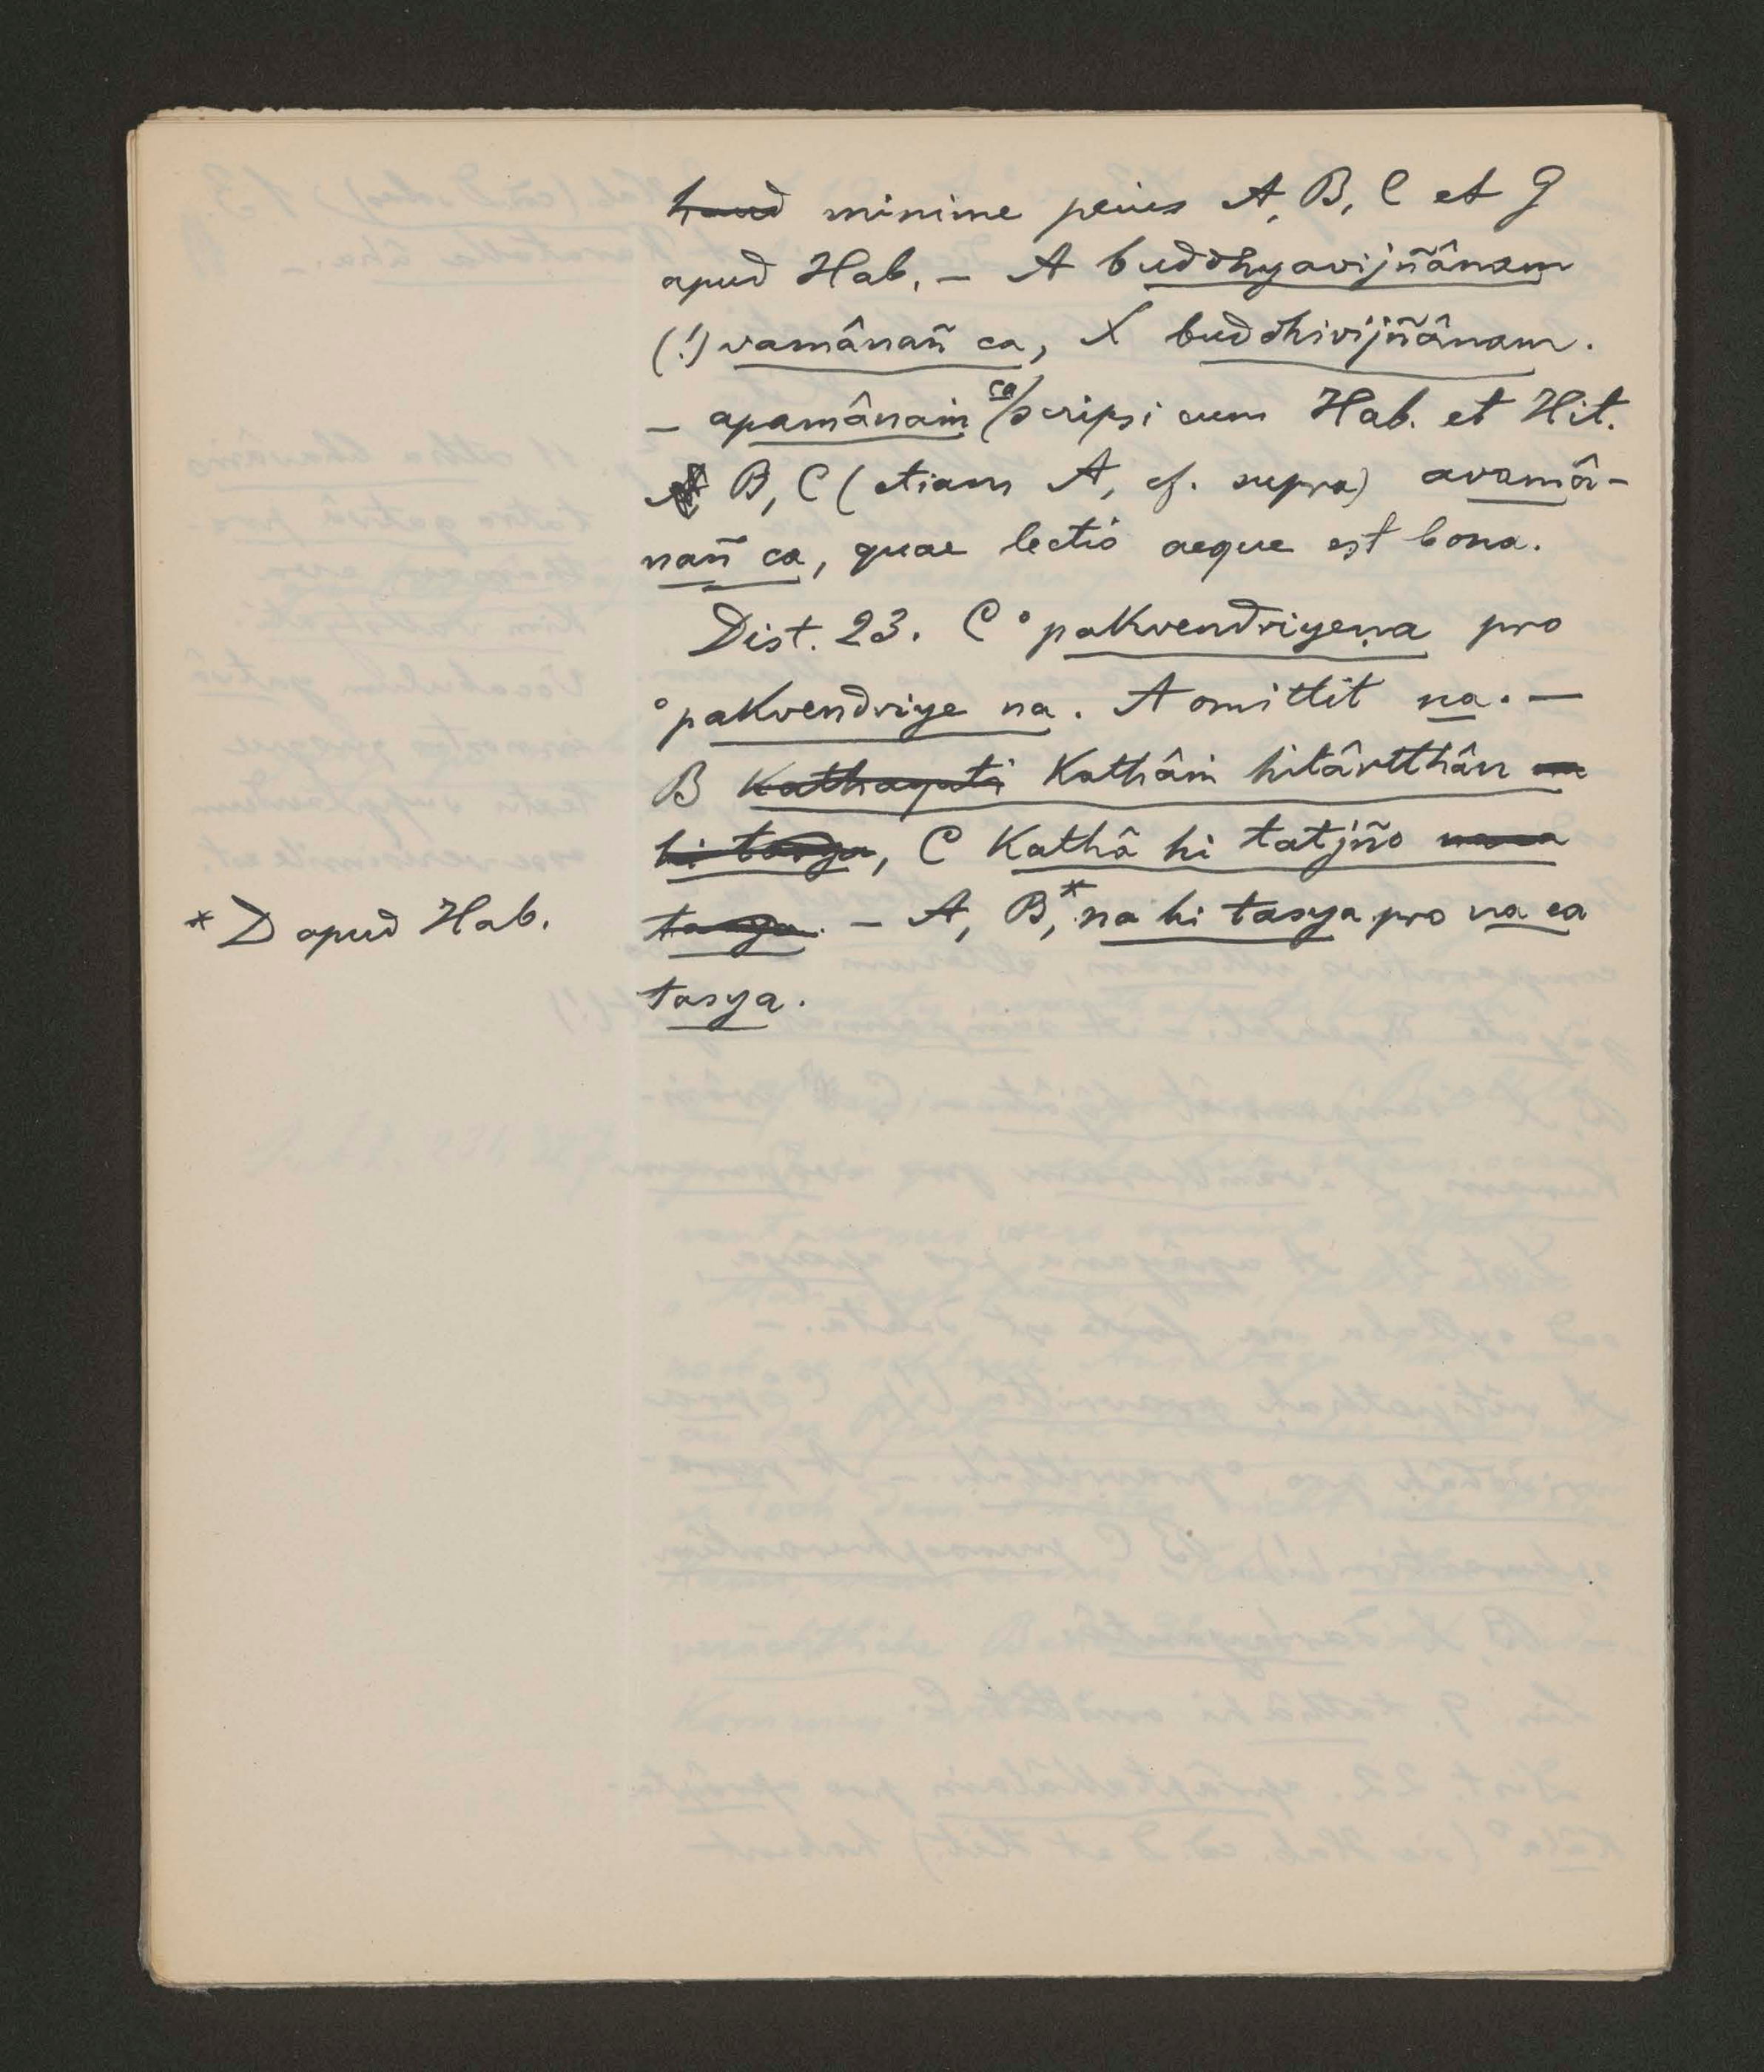 haud minime peius A, B, C et G
apud Hab. – A buddhyavijñânam
(!) vamânañ ca, X buddhivijñânam.
– apamânaṁ ca scripsi cum Hab. et Hit.
B, C (etiam A, cf. supra) avamâ-
nañ ca, quae lectio aeque est bona.
Dist. 23. C °pakvendriyeṇa pro
°pakvendriye na. A omittit na. –
B kathayati Kathâṁ hitârtthân
hi tasya, C Kathâ hi tatjño
tasya. – A, B,* na hi tasya pro na ca
* D apud Hab.
tasya.